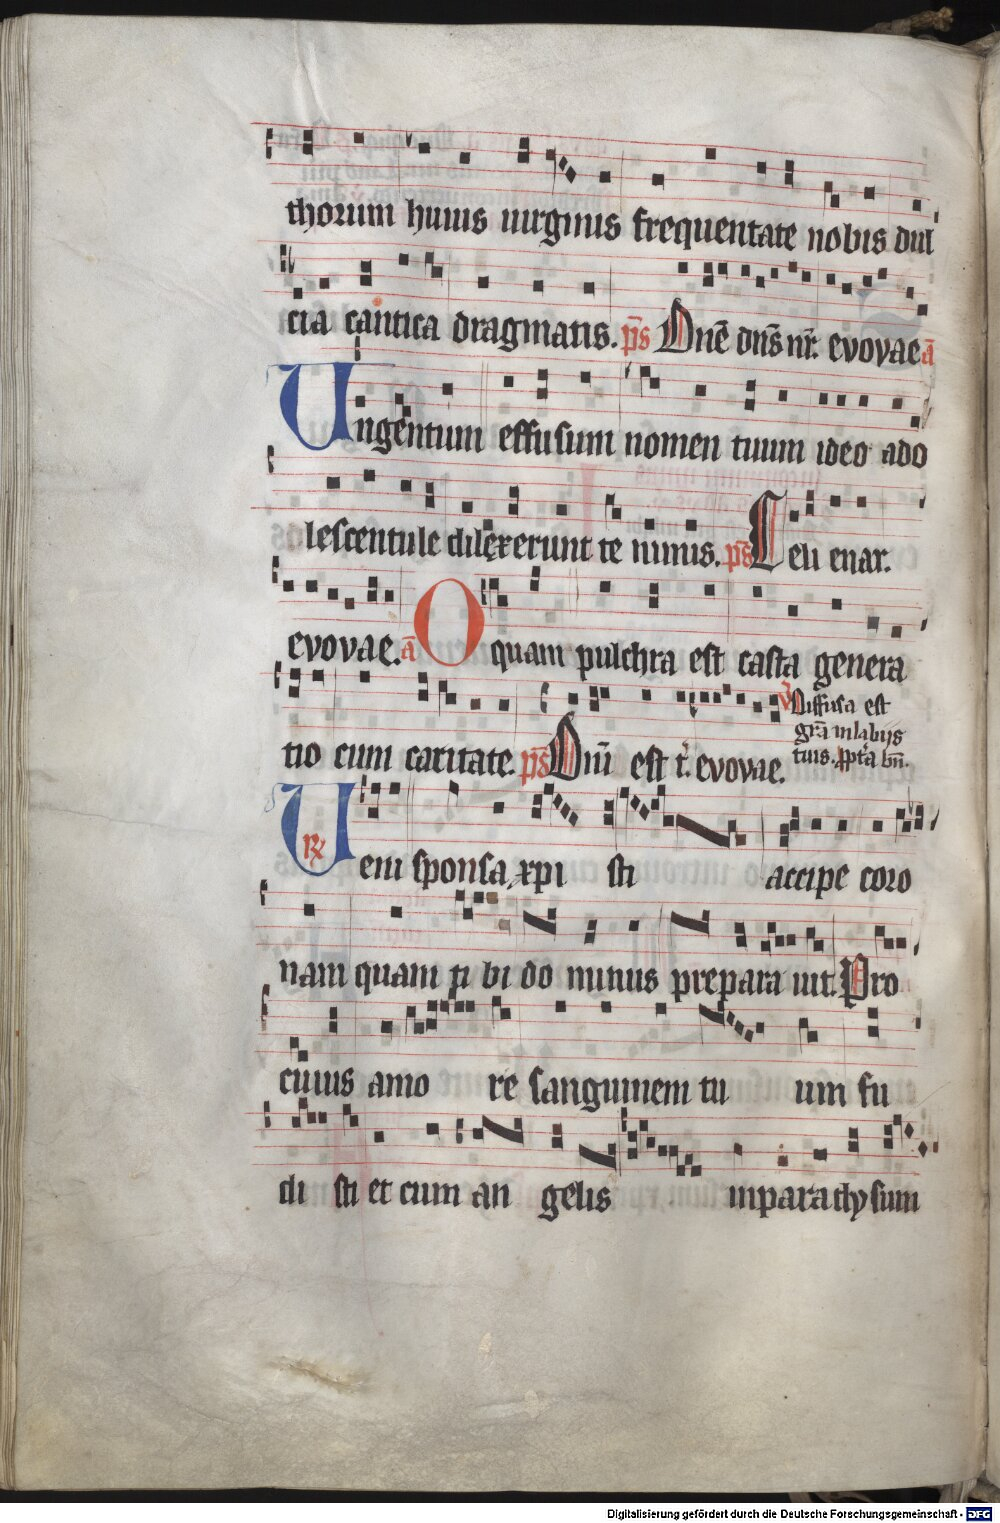 thorum huius uirginis frequentate nobis dul
cia cantica dragmatis. p̄s Dn̄e dn̄s nr̄. evovae ā
Ungentum effusum nomen tuum ideo ado
lescentule dilexerunt te nimis. p̄s Celi enar.
evovae. ā O quam pulchra est casta genera
tio cum caritate. p̄s Dn̄i est t̄. evovae. v̄ Diffusa est
gr̄a in labiis
tuis. ꝓpt̄a bn̄.
℟ Ueni sponsa xpi sti accipe coro
nam quam ti bi do minus prepara uit. Pro
cuius amo re sanguinem tu um fu
di sti et cum an gelis in paradysum
Digitalisierung gefördert durch die Deutsche Forschungsgemeinschaft - DFG